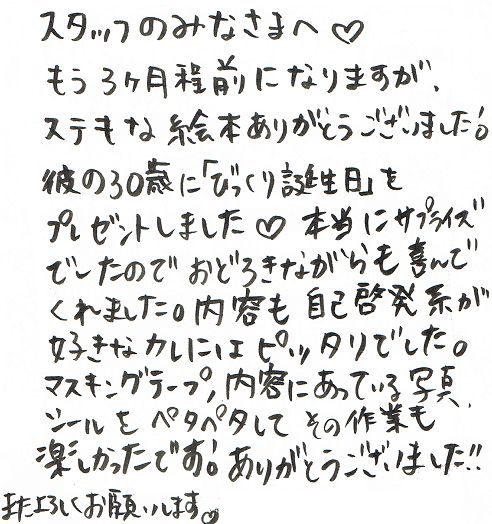 スタッフのみなさまへ♡
もう3ヶ月程前になりますが、
ステキな絵本ありがとうございました!。
彼の30歳に「びっくり誕生日」を
プレゼントしました♡ 本当にサプライズ
でしたのでおどろきながらも喜んで
くれました。内容も自己啓発系が
好きなカレにはピッタリでした。
マスキングテープ,内容にあっている写真、
シールをペタペタしてその作業も
楽しかったです!。ありがとうございました!!
またよろしくお願いします。